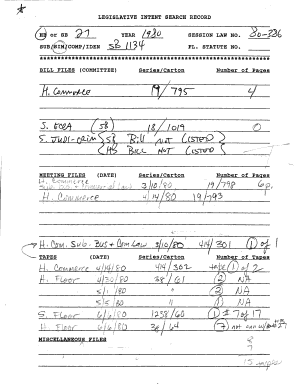 LEGISLATIVE INTENT SEARCH RECORD
HB or SB 27 YEAR 1980 SESSION LAW NO. 80-326
SUB/SIM/COMP/IDEN SB 1134 FL. STATUTE NO.
BILL FILES (COMMITTEE) Series/Carton Number of Pages
H. Commerce 19/795 4
S. ECCA (SB) 18/1019 0
S. JUDI-CRIM SB Bill NOT LISTED
HB BILL NOT LISTED
MEETING FILES (DATE) Series/Carton Number of Pages
H. Commerce
Sub. Bus + Law 3/10/80 19/798 6p.
H. Commerce 4/14/80 19/793
H. Com. Sub. Bus + Com Law 3/10/80 414/301 1 of 1
TAPES (DATE) Series/Carton Number of Pages
H. Commerce 4/14/80 414/302 tape 1 of 2
H. Floor 4/30/80 38/61 2 NA
5/1/80 " 2 NA
5/5/80 " 1 NA
S. Floor 6/6/80 1258/60 1 & 7 of 17
H. Floor 6/6/80 38/64 7 not on
MISCELLANEOUS FILES Series/Carton Number of Pages